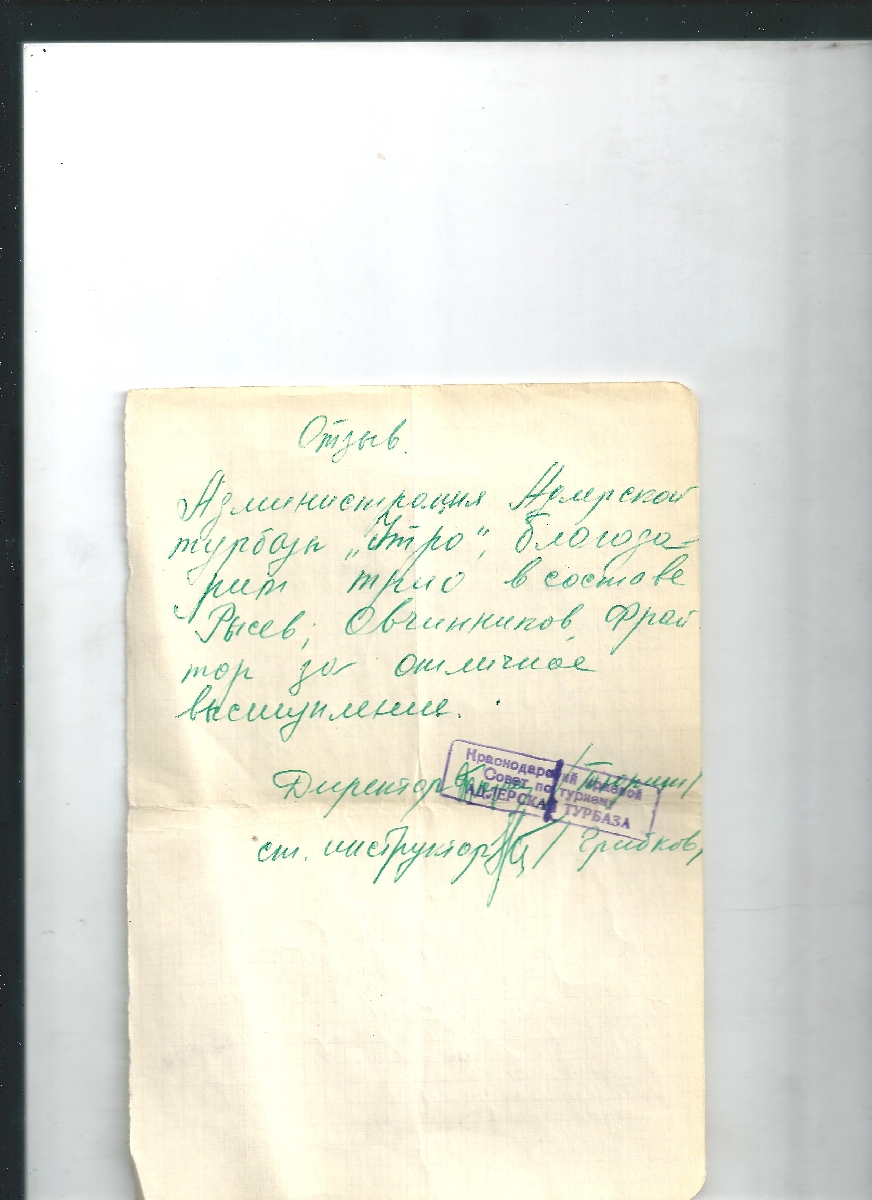 Отзыв.
Администрация Адлерской
турбазы „Утро“, благода-
рит трио в составе
Рысев, Овчинников, Фрай
тор за отличное
выступление.
Директор
Краснодарский краевой
Совет по туризму
АДЛЕРСКАЯ ТУРБАЗА
ст. инструктор / Грибков,